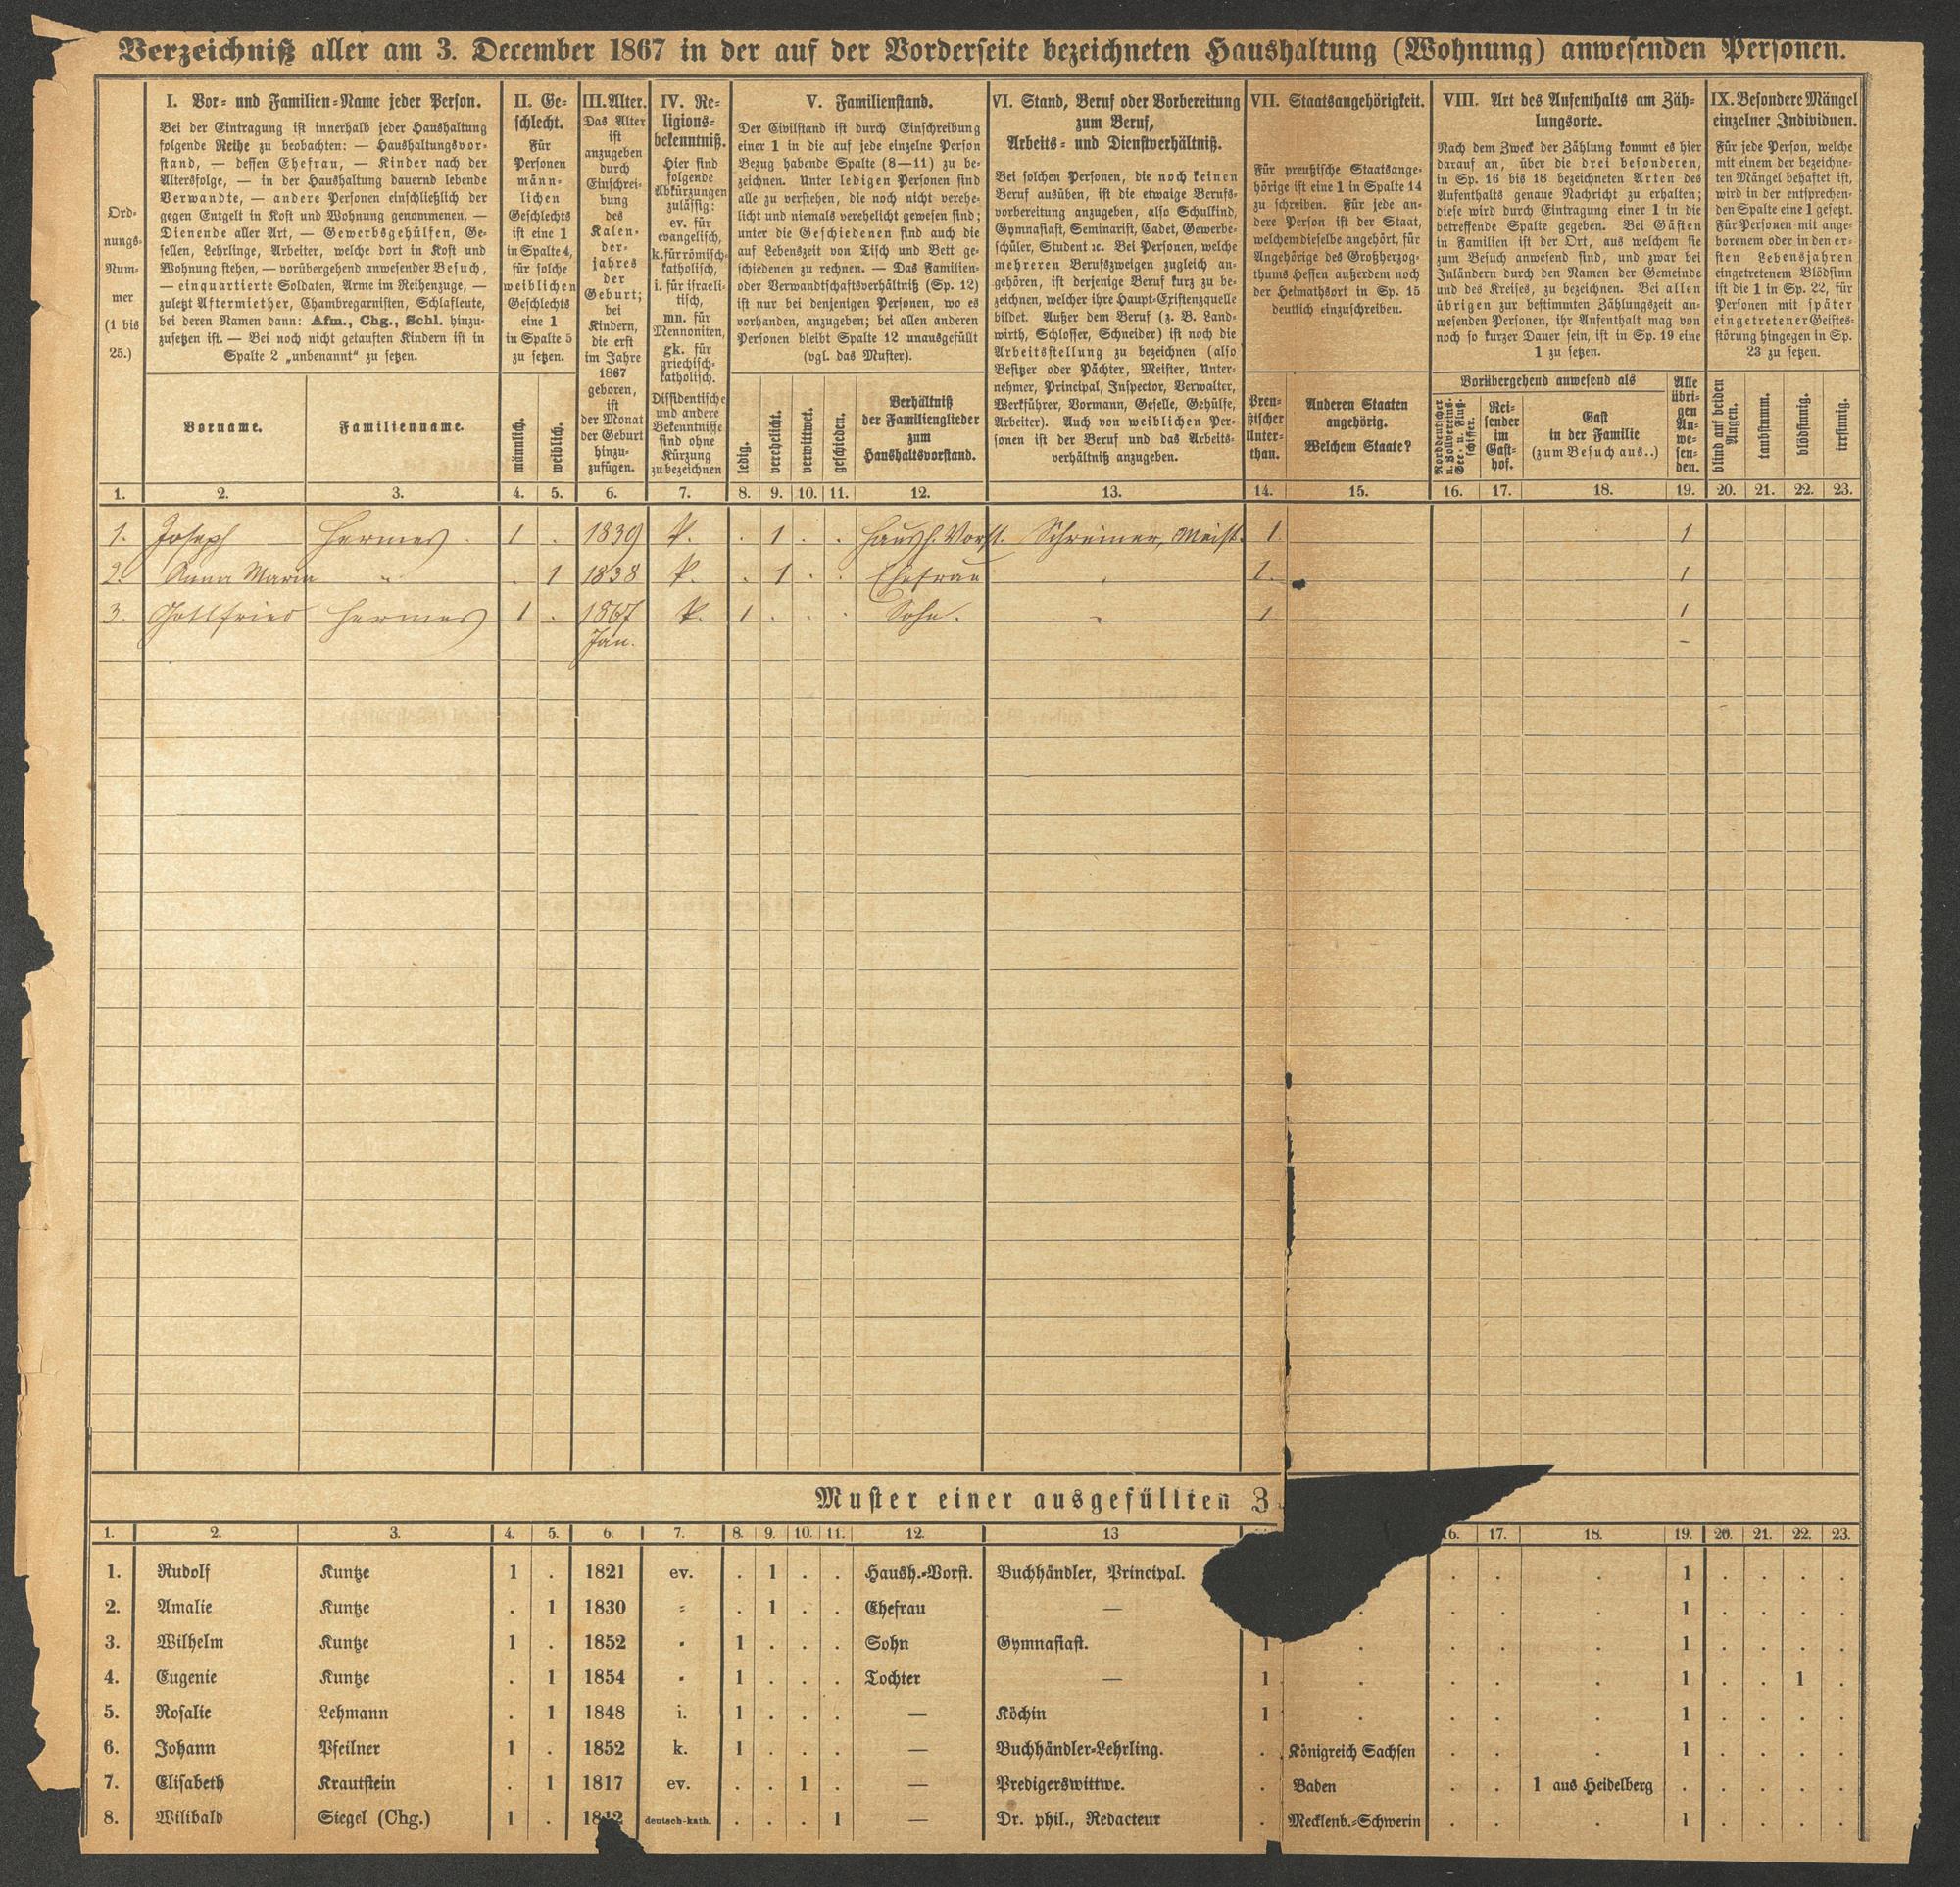 Verzeichniß aller am 3. December 1867 in der auf der Vorderseite bezeichneten Haushaltung (Wohnung) anwesenden Personen.
Ord-
nungs-
Num-
mer
(1 bis
25.)
I. Vor- und Familien-Name jeder Person.
Bei der Eintragung ist innerhalb jeder Haushaltung
folgende Reihe zu beobachten: — Haushaltungsvor-
stand, — dessen Ehefrau, — Kinder nach der
Altersfolge, — in der Haushaltung dauernd lebende
Verwandte, — andere Personen einschließlich der
gegen Entgelt in Kost und Wohnung genommenen, —
Dienende aller Art, — Gewerbsgehülfen, Ge-
sellen, Lehrlinge, Arbeiter, welche dort in Kost und
Wohnung stehen, — vorübergehend anwesender Besuch,
— einquartierte Soldaten, Arme im Reihenzuge, —
zuletzt Aftermiether, Chambregarnisten, Schlafleute,
bei deren Namen dann: Afm., Chg., Schl. hinzu-
zusetzen ist. — Bei noch nicht getauften Kindern ist in
Spalte 2 „unbenannt“ zu setzen.
Vorname.
Familienname.
II. Ge-
schlecht.
Für
Personen
männ-
lichen
Geschlechts
ist eine 1
in Spalte 4,
für solche
weiblichen
Geschlechts
eine 1
in Spalte 5
zu setzen.
männlich.
weiblich.
III. Alter.
Das Alter
ist
anzugeben
durch
Einschrei-
bung
des
Kalen-
der-
jahres
der
Geburt;
bei
Kindern,
die erst
im Jahre
1867
geboren,
ist
der Monat
der Geburt
hinzu-
zufügen.
IV. Re-
ligions-
bekenntniß.
Hier sind
folgende
Abkürzungen
zulässig:
ev. für
evangelisch,
k. für römisch-
katholisch,
i. für israeli-
tisch,
mn. für
Mennoniten,
gk. für
griechisch-
katholisch.
Dissidentische
und andere
Bekenntnisse
sind ohne
Kürzung
zu bezeichnen
V. Familienstand.
Der Civilstand ist durch Einschreibung
einer 1 in die auf jede einzelne Person
Bezug habende Spalte (8—11) zu be-
zeichnen. Unter ledigen Personen sind
alle zu verstehen, die noch nicht verehe-
licht und niemals verehelicht gewesen sind;
unter die Geschiedenen sind auch die
auf Lebenszeit von Tisch und Bett ge-
schiedenen zu rechnen. — Das Familien-
oder Verwandtschaftsverhältniß (Sp. 12)
ist nur bei denjenigen Personen, wo es
vorhanden, anzugeben; bei allen anderen
Personen bleibt Spalte 12 unausgefüllt
(vgl. das Muster).
ledig.
verehelicht.
verwittwet.
geschieden.
Verhältniß
der Familienglieder
zum
Haushaltsvorstand.
VI. Stand, Beruf oder Vorbereitung
zum Beruf,
Arbeits- und Dienstverhältniß.
Bei solchen Personen, die noch keinen
Beruf ausüben, ist die etwaige Berufs-
vorbereitung anzugeben, also Schulkind,
Gymnasiast, Seminarist, Cadet, Gewerbe-
schüler, Student ꝛc. Bei Personen, welche
mehreren Berufszweigen zugleich an-
gehören, ist derjenige Beruf kurz zu be-
zeichnen, welcher ihre Haupt-Existenzquelle
bildet. Außer dem Beruf (z. B. Land-
wirth, Schlosser, Schneider) ist noch die
Arbeitsstellung zu bezeichnen (also
Besitzer oder Pächter, Meister, Unter-
nehmer, Principal, Inspector, Verwalter,
Werkführer, Vormann, Geselle, Gehülfe,
Arbeiter). Auch von weiblichen Per-
sonen ist der Beruf und das Arbeits-
verhältniß anzugeben.
VII. Staatsangehörigkeit.
Für preußische Staatsange-
hörige ist eine 1 in Spalte 14
zu schreiben. Für jede an-
dere Person ist der Staat,
welchem dieselbe angehört, für
Angehörige des Großherzog-
thums Hessen außerdem noch
der Heimathsort in Sp. 15
deutlich einzuschreiben.
Preu-
ßischer
Unter-
than.
Anderen Staaten
angehörig.
Welchem Staate?
VIII. Art des Aufenthalts am Zäh-
lungsorte.
Nach dem Zweck der Zählung kommt es hier
darauf an, über die drei besonderen,
in Sp. 16 bis 18 bezeichneten Arten des
Aufenthalts genaue Nachricht zu erhalten;
diese wird durch Eintragung einer 1 in die
betreffende Spalte gegeben. Bei Gästen
in Familien ist der Ort, aus welchem sie
zum Besuch anwesend sind, und zwar bei
Inländern durch den Namen der Gemeinde
und des Kreises, zu bezeichnen. Bei allen
übrigen zur bestimmten Zählungszeit an-
wesenden Personen, ihr Aufenthalt mag von
noch so kurzer Dauer sein, ist in Sp. 19 eine
1 zu setzen.
Vorübergehend anwesend als
Norddeutscher
u. Zollvereins-
See- u. Fluß-
schiffer.
Rei-
sender
im
Gast-
hof.
Gast
in der Familie
(zum Besuch aus..)
Alle
übri-
gen
An-
we-
sen-
den.
IX. Besondere Mängel
einzelner Individuen.
Für jede Person, welche
mit einem der bezeichne-
ten Mängel behaftet ist,
wird in der entsprechen-
den Spalte eine 1 gesetzt.
Für Personen mit ange-
borenem oder in den er-
sten Lebensjahren
eingetretenem Blödsinn
ist die 1 in Sp. 22, für
Personen mit später
eingetretener Geistes-
störung hingegen in Sp.
23 zu setzen.
blind auf beiden
Augen.
taubstumm.
blödsinnig.
irrsinnig.
1. 2. 3. 4. 5. 6. 7. 8. 9. 10. 11. 12. 13. 14. 15. 16. 17. 18. 19. 20. 21. 22. 23.
1. Joseph Hermes . 1 . 1839 k. . 1 . . Haush. Vorst. Schreiner, Meist. 1 1
2. Anna Maria " . 1 1838 k. . 1 . . Ehefrau 1. 1
3. Gottfried Hermes 1 . 1867 k. 1 . . . Sohn. 1 1
Jan. –
Muster einer ausgefüllten Z
1. 2. 3. 4. 5. 6. 7. 8. 9. 10. 11. 12. 13 16. 17. 18. 19. 20. 21. 22. 23.
1. Rudolf Kuntze 1 . 1821 ev. . 1 . . Haush.-Vorst. Buchhändler, Principal. . . . 1 . . . .
2. Amalie Kuntze . 1 1830 = . 1 . . Ehefrau — . . . . 1 . . . .
3. Wilhelm Kuntze 1 . 1852 " 1 . . . Sohn Gymnasiast. 1 . . . . 1 . . . .
4. Eugenie Kuntze . 1 1854 " 1 . . . Tochter — 1 . . . . 1 . . 1 .
5. Rosalie Lehmann . 1 1848 i. 1 . . . — Köchin 1 . . . . 1 . . . .
6. Johann Pfeilner 1 . 1852 k. 1 . . . — Buchhändler-Lehrling. . Königreich Sachsen . . . 1 . . . .
7. Elisabeth Krautstein . 1 1817 ev. . . 1 . — Predigerswittwe. . Baden . . 1 aus Heidelberg . . . . .
8. Wilibald Siegel (Chg.) 1 . 1812 deutsch-kath. . . . 1 — Dr. phil., Redacteur . Mecklenb.-Schwerin . . . 1 . . . .